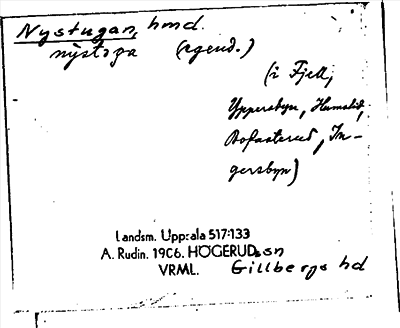 Nystugan, hmd.
nystoga (egend.)
(i Fjell,
Yppersbyn,
Bofasterud, In-
gersbyn)
Landsm. Uppsala 517:133
A. Rudin. 1906. HÖGERUD ssn
VRML. Gillbergs hd